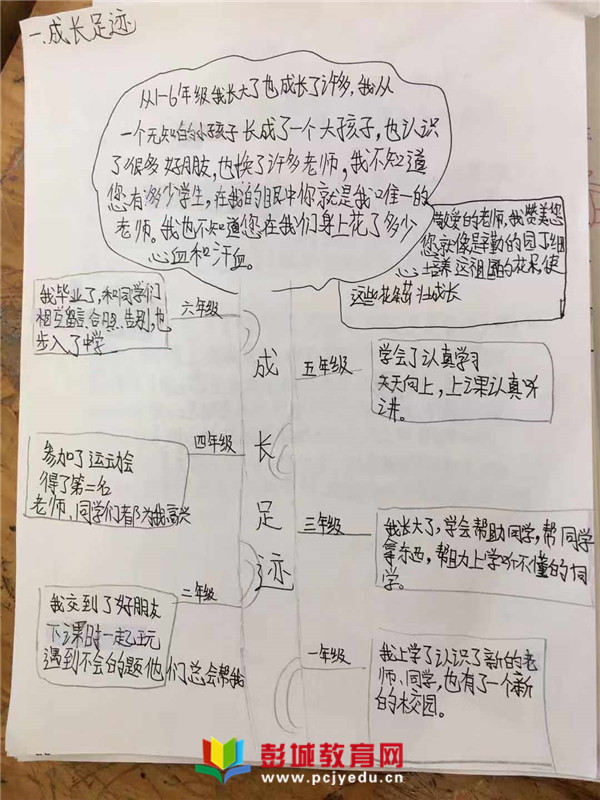 一、成长足迹
从1-6年级我长大了也成长了许多,我从
一个无知的小孩子长成了一个大孩子,也认识
了很多好朋友,也换了许多老师,我不知道
您有多少学生,在我的眼中你就是我唯一的
老师。我也不知道您在我们身上花了多少
心血和汗血。
敬爱的老师,我赞美您
您就像是辛勤的园丁细
心培养这祖国的花朵,使
这些花朵茁壮成长
六年级
我毕业了,和同学们
相互留言、合照、告别,也
步入了中学
五年级
学会了认真学习
天天向上,上课认真听
讲。
四年级
参加了运动会
得了第二名
老师、同学们都为我高兴
成长足迹
三年级
我长大了,学会帮助同学,帮同学
拿东西,帮助上学听不懂的同
学。
二年级
我交到了好朋友
下课时一起玩
遇到不会的题他们总会帮我
一年级
我上学了认识了新的老
师、同学,也有了一个新
的校园。
彭城教育网
www.pcjyedu.cn